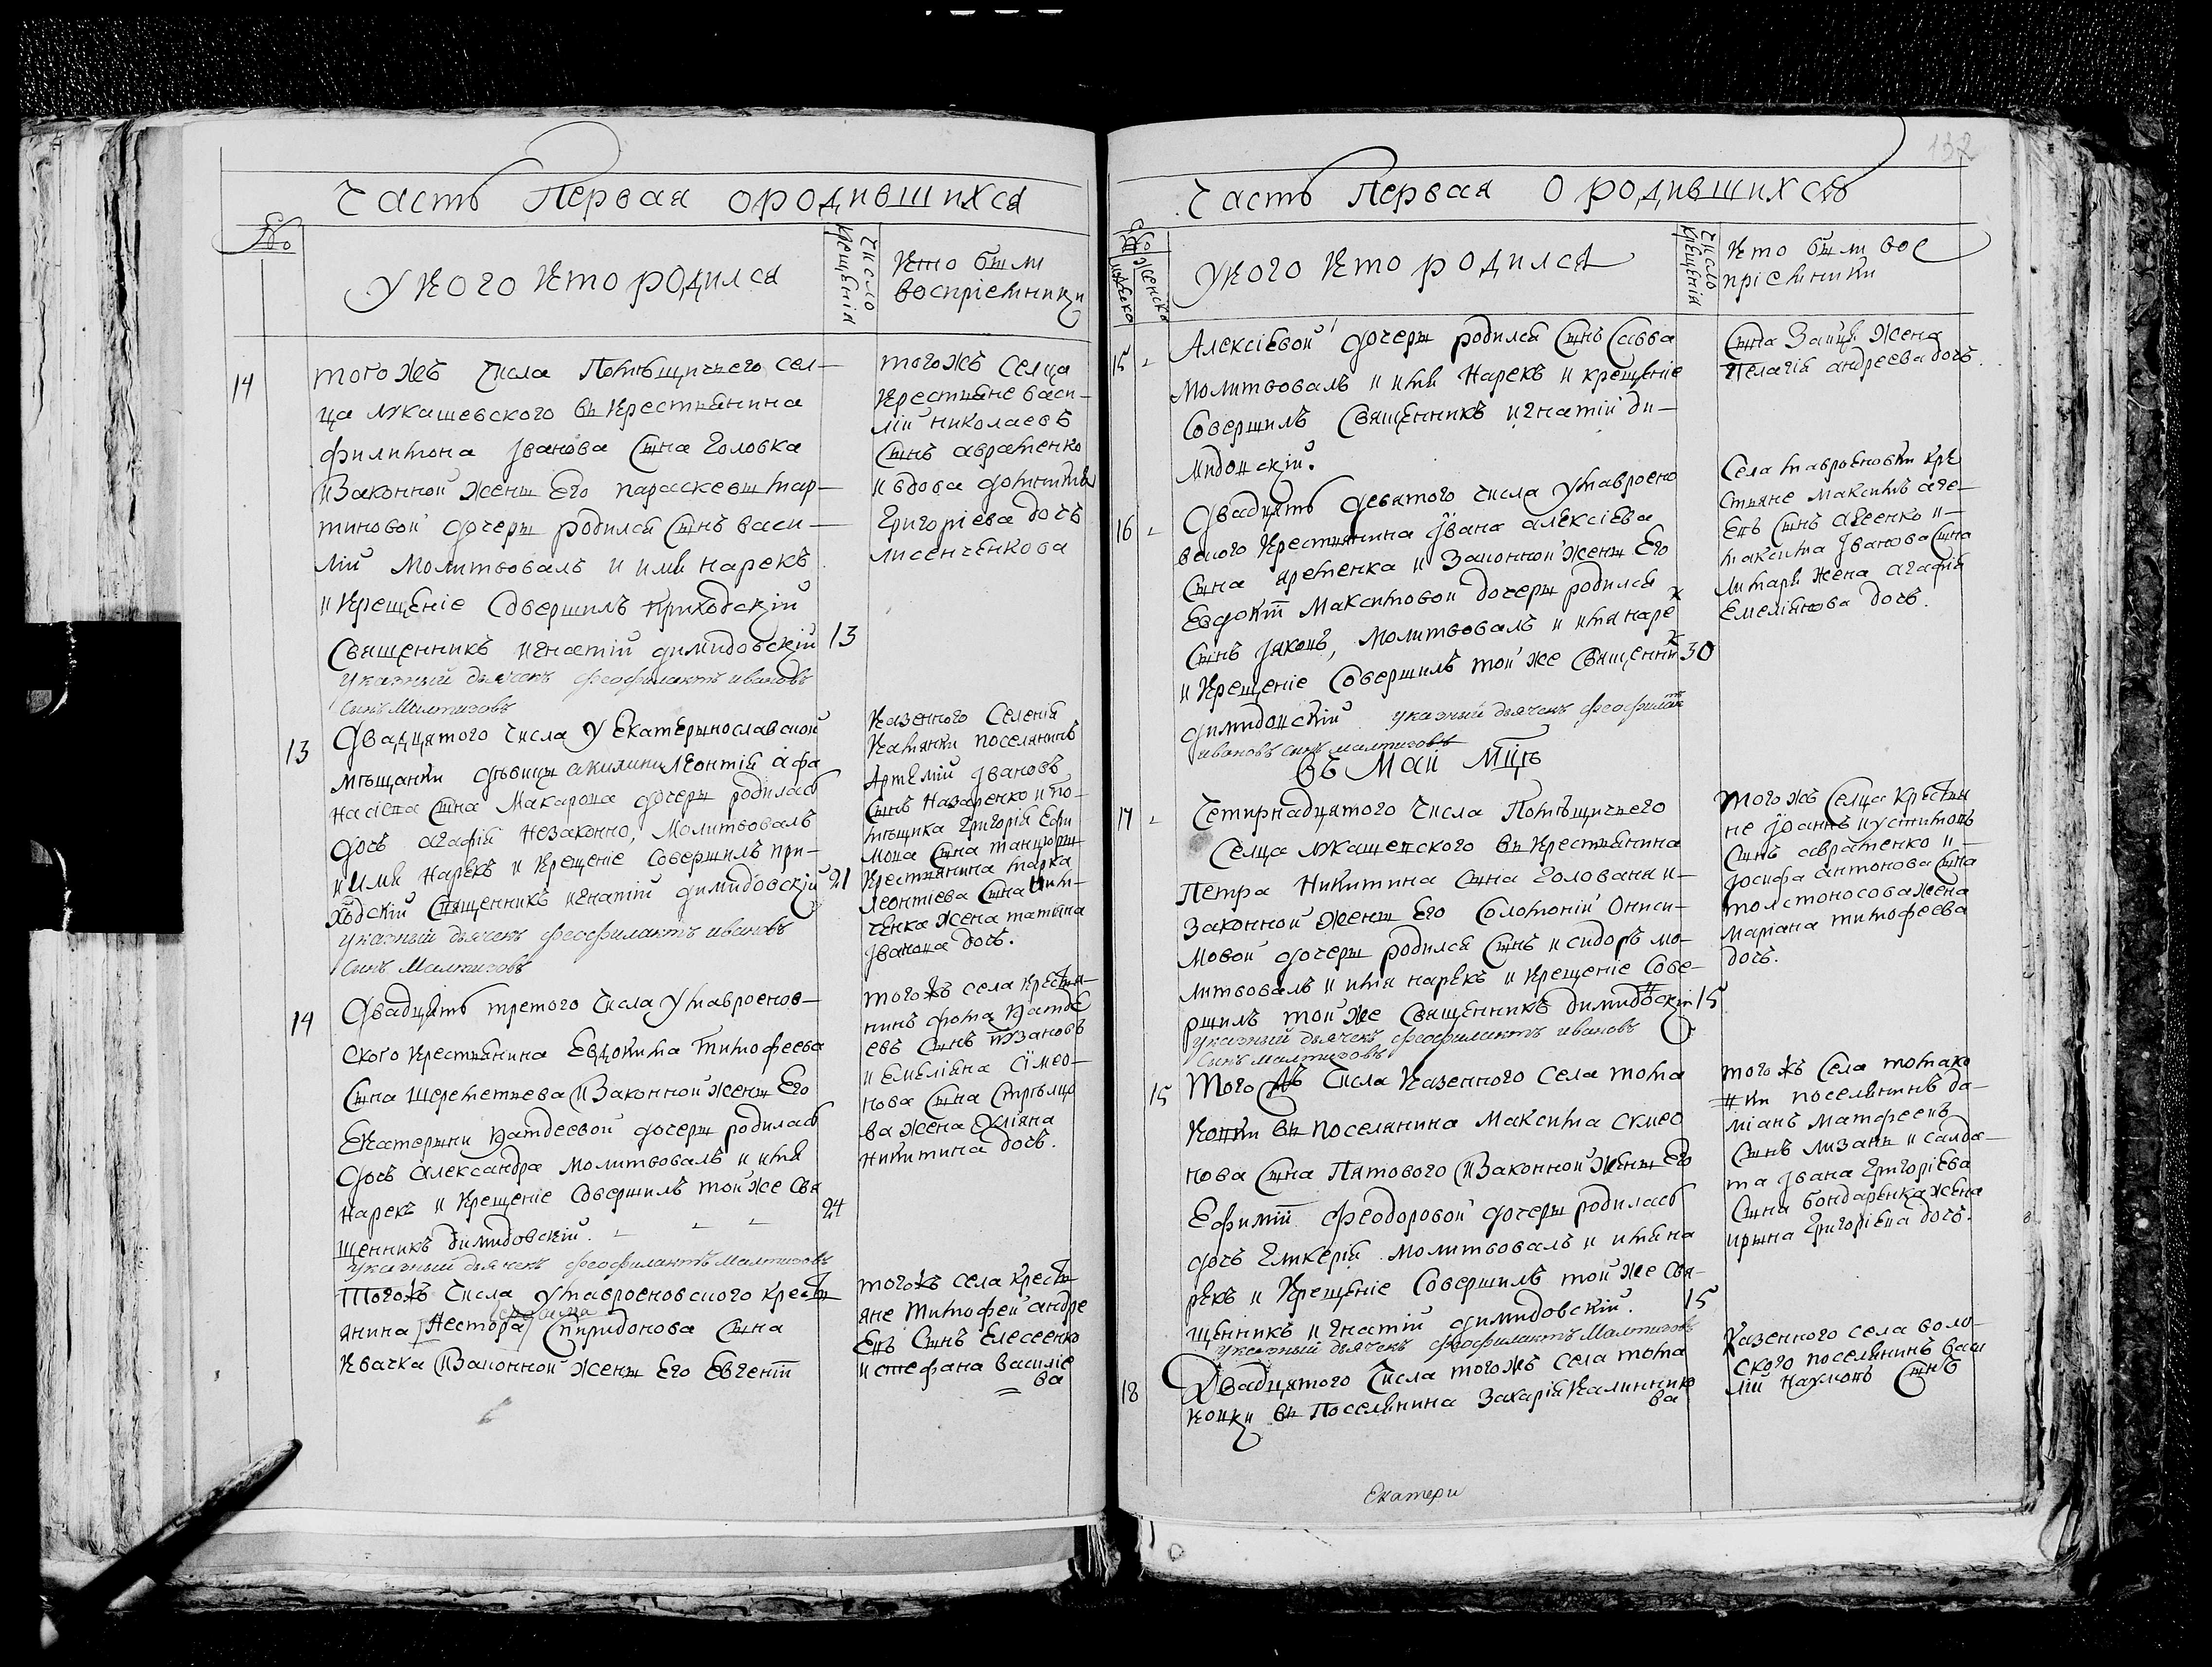 Часть Первая ородившихся
№
У кого кто родился
Число крещенія
Кто были
воспріемники
14
того жъ числа Помѣщичьего сел-
ца лукашевского вн Крестьянина
филимона Іванова Сына Головка
и Законной жены Его параскевы мар-
тиновой дочеры родился Сынъ васи-
лій молитвовалъ и имя нарекъ
и Крещеніе Совершилъ приходскій
Священникъ игнатій димидовскій 13
указный дьячекъ феофилактъ ивановъ
сынъ
тогожъ Селца
Крестьяне васи-
лій николаевъ
Сынъ авраменко
и вдова домникія
Григоріева дочъ
лисенченкова
13
Двадцятого числа У Екатерынославской
мѣщанки дѣвицы акилины Леонтія афа
насіева Сына Макарова дочеры родилась
дочъ агафія незаконно, молитвовалъ
и имя нарекъ и Крещеніе Совершилъ при-
ходскій Священникъ игнатій димидовскій 21
указный дьячекъ феофилактъ ивановъ
сынъ
Казенного Селенія
Камянки поселянинъ
Артемій Івановъ
Сынъ Назаренко и по-
мѣщика Григорія Ефи
мова Сына танцюры
Крестьянина марка
леонтіева Сына
ченка жена татіяна
Іванова дочъ.
14
Двадцять третого числа У мавроенов-
ского крестьянина Евдокима Тимофеева
Сына Шереметьева и Законной жены Его
Екатерыны Фатдеевой дочеры родилась
дочъ александра молитвовалъ и имя
нарекъ и Крещеніе Совершилъ той же Свя
щенникъ димидовскій. 24
указный дьячекъ феофилактъ
того жъ села крестья-
нинъ фома Фатдѣ
евъ Сынъ
и Емеліяна Сімео-
нова Сына Стрѣлцо
ва жена Уліяна
никитина дочъ.
Того жъ числа У мавроеновского крестья
янина Нестора Спиридонова Сына
герасима
Квачка и Законной жены Его Евгеніи
того жъ села крестья
яне Тимофей андре
евъ Сынъ Елесеенко
и стефана василіе
ва
132
Часть Первая О родившихся
№
мужеска
женска
У кого Кто родился
Число крещенія
Кто были вос
пріемники
15
Алексіевой дочеры родился Сынъ Савва
молитвовалъ и имя нарекъ и крещеніе
Совершилъ Священникъ игнатій ди-
мидовскій.
Сына Зайця жена
Пелагія андреева дочъ.
16
Двадцять девятого числа У мавроено
вского Крестьянина Івана алексіева
Сына яременка и Законной жены Его
Евдокіи Максимовой дочеры родился
Сынъ Іяковъ, молитвовалъ и имя нарек
и Крещеніе Совершилъ той же Священник 30
димидовскій указный дьячекъ феофилактъ
ивановъ сынъ
Села мавроеновки кре
стьяне максимъ аге-
евъ Сынъ агеенко и-
максима Іванова Сына
литаря жена агафія
Емеліянова дочъ.
Въ Маи Мцѣ
17
Четирнадцятого числа Помѣщичьего
Селца лукашевского вн Крестьянина
Петра Никитина Сына Голованя и-
Законной жены Его Соломоніи Ониси-
мовой дочеры родился Сынъ исидоръ мо-
литвовалъ и имя нарекъ и Крещеніе Сове-
ршилъ той же Священникъ димидовскій 15
указный дьячекъ феофилактъ ивановъ
сынъ
того жъ Селца крестья
не Іоаннъ иустимовъ
Сынъ авраменко и-
Іосифа антонова Сына
толстоносова жена
маріана тимофеева
дочъ.
15
Того жъ числа Казенного Села тома
ковки вн поселянина Максима симео
нова Сына Пятового и Законной жены Его
Ефиміи феодоровой дочеры родилась
дочъ Гликерія молитвовалъ и имя на
рекъ и Крещеніе Совершилъ той же Свя-
щенникъ игнатій димидовскій. 15
указный дьячекъ феофилактъ
того жъ Села томако
вки поселянинъ да-
міанъ матфеевъ
Сынъ лизанъ и салда-
та Івана Григоріева
Сына бондаренка жена
ирына Григоріева дочъ.
18
Двадцятого числа того жъ Села тома
ковки вн Поселянина Захарія Калиннико
ва
Казенного села воло-
ского поселянинъ васи
лій наумовъ Сынъ
Екатери